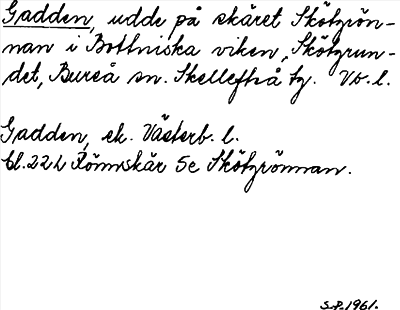 Gadden, udde på skäret Skötgrön-
nan i Bottniska viken, Skötgrun-
det, Bureå sn. Skellefteå tg. Vb. l.
Gadden, ek. Västerb. l.
bl. 22 L Rönnskär 5e Skötgrönnan.
S.P. 1961.